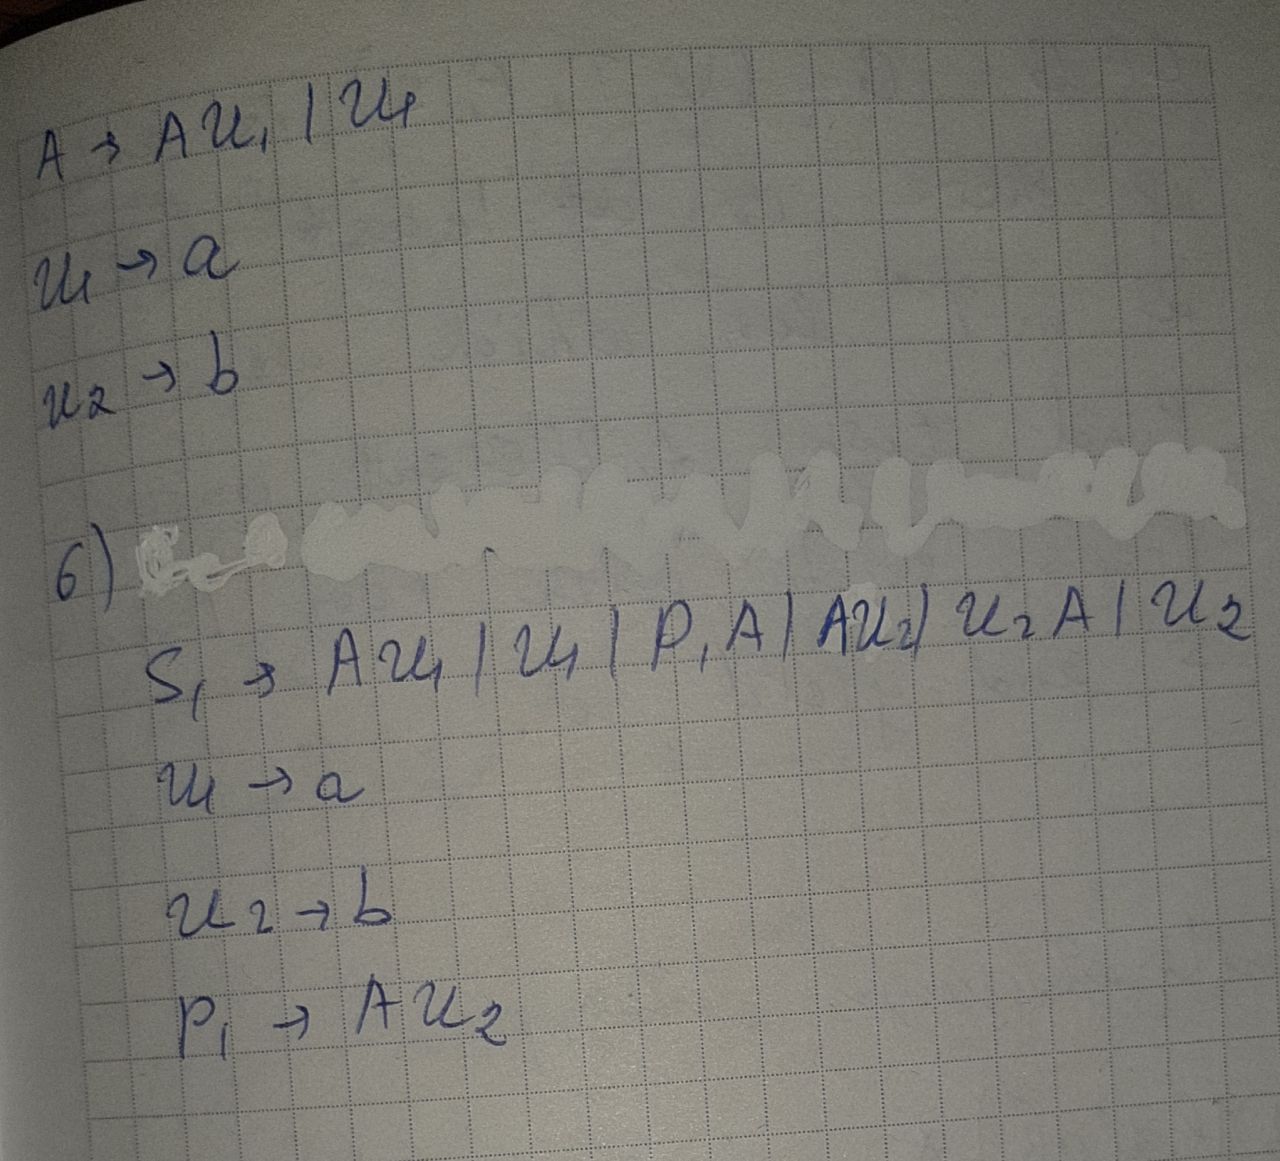 A → A U₁ | U₁
U₁ → a
U₂ → b
6)
S₁ → A U₁ | U₁ | P₁ A | A U₂ | U₂ A | U₂
U₁ → a
U₂ → b
P₁ → A U₂